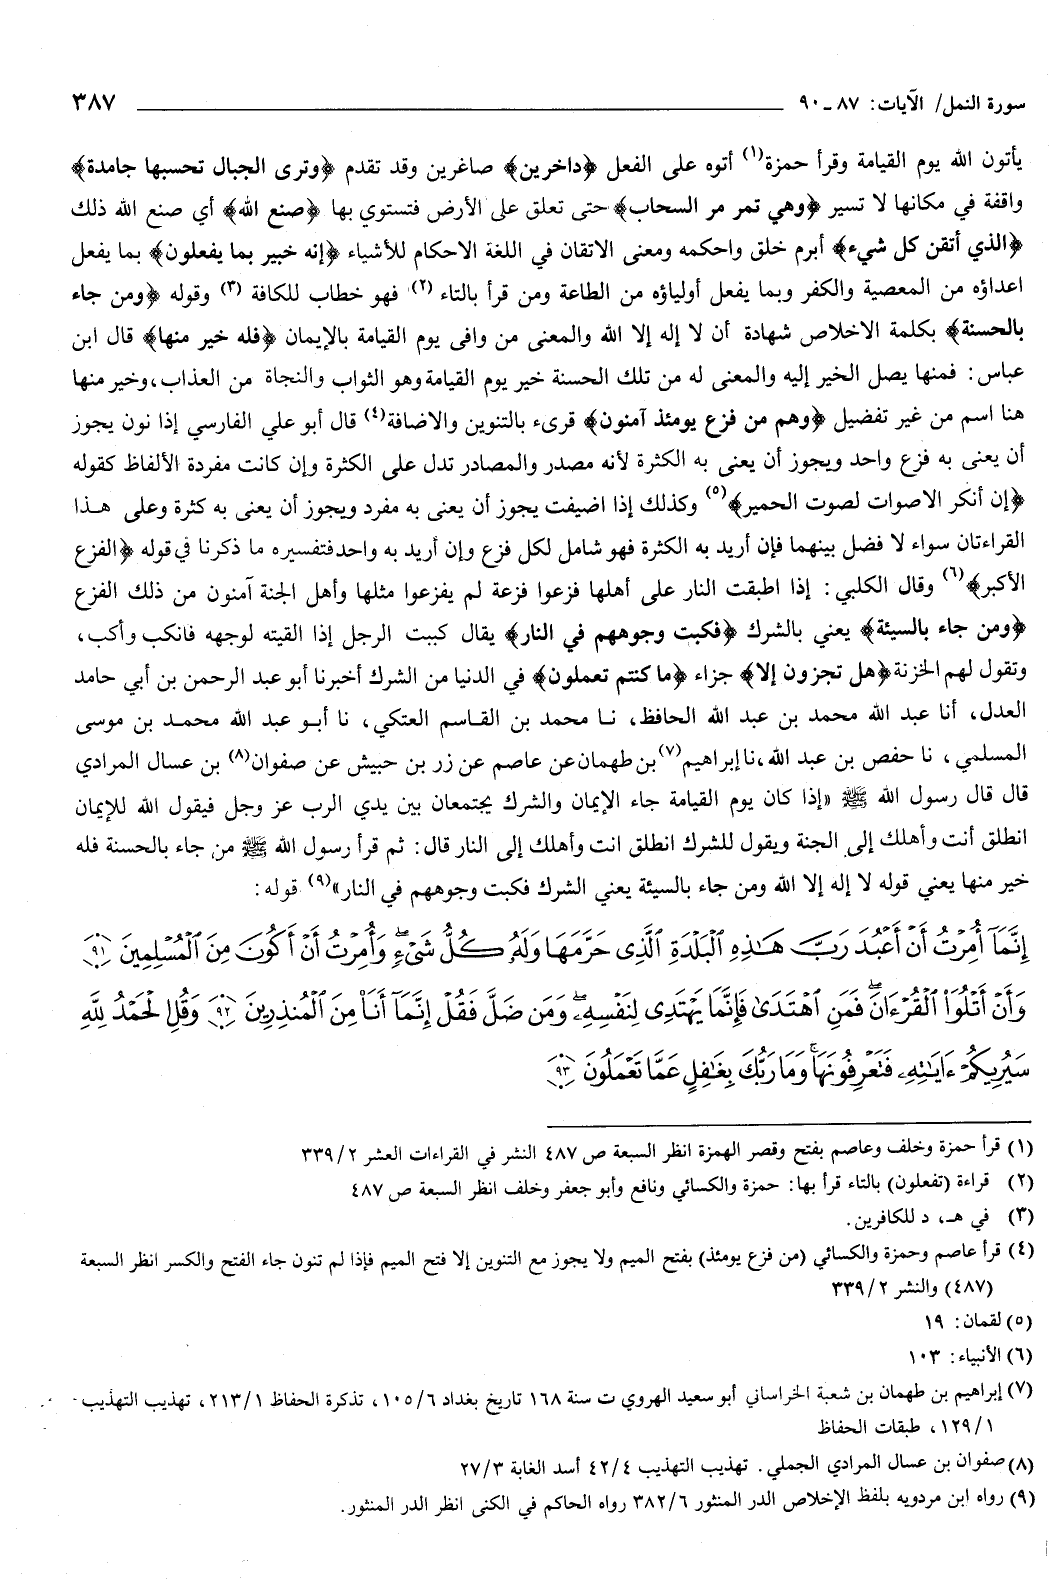 سورة النمل/ الآيات: ٨٧ ـ ٩٠ ٣٨٧
يأتون الله يوم القيامة وقرأ حمزة(١) أتوه على الفعل ﴿داخرين﴾ صاغرين وقد تقدم ﴿وترى الجبال تحسبها جامدة﴾
واقفة في مكانها لا تسير ﴿وهي تمر مر السحاب﴾ حتى تعلق على الأرض فتستوي بها ﴿صنع الله﴾ أي صنع الله ذلك
﴿الذي أتقن كل شيء﴾ أبرم خلق واحكمه ومعنى الاتقان في اللغة الاحكام للأشياء ﴿إنه خبير بما يفعلون﴾ بما يفعل
اعداؤه من المعصية والكفر وبما يفعل أولياؤه من الطاعة ومن قرأ بالتاء (٢) فهو خطاب للكافة (٣) وقوله ﴿ومن جاء
بالحسنة﴾ بكلمة الاخلاص شهادة أن لا إله إلا الله والمعنى من وافى يوم القيامة بالإيمان ﴿فله خير منها﴾ قال ابن
عباس: فمنها يصل الخير إليه والمعنى له من تلك الحسنة خير يوم القيامة وهو الثواب والنجاة من العذاب، وخير منها
هنا اسم من غير تفضيل ﴿وهم من فزع يومئذ آمنون﴾ قرىء بالتنوين والاضافة(٤) قال أبو علي الفارسي إذا نون يجوز
أن يعنى به فزع واحد ويجوز أن يعنى به الكثرة لأنه مصدر والمصادر تدل على الكثرة وإن كانت مفردة الألفاظ كقوله
﴿إن أنكر الاصوات لصوت الحمير﴾(٥) وكذلك إذا اضيفت يجوز أن يعنى به مفرد ويجوز أن يعنى به كثرة وعلى هـذا
القراءتان سواء لا فضل بينهما فإن أريد به الكثرة فهو شامل لكل فزع وإن أريد به واحد فتفسيره ما ذكرنا في قوله ﴿الفزع
الأكبر﴾(٦) وقال الكلبي: إذا اطبقت النار على أهلها فزعوا فزعة لم يفزعوا مثلها وأهل الجنة آمنون من ذلك الفزع
﴿ومن جاء بالسيئة﴾ يعني بالشرك ﴿فكبت وجوههم في النار﴾ يقال كببت الرجل إذا القيته لوجهه فانكب وأكب،
وتقول لهم الخزنة ﴿هل تجزون إلا﴾ جزاء ﴿ما كنتم تعملون﴾ في الدنيا من الشرك أخبرنا أبو عبد الرحمن بن أبي حامد
العدل، أنا عبد الله محمد بن عبد الله الحافظ، نـا محمد بن القـاسم العتكي، نا أبـو عبد الله محمـد بن موسى
المسلمي، نا حفص بن عبد الله، نا إبراهيم(٧) بن طهمان عن عاصم عن زر بن حبيش عن صفوان(٨) بن عسال المرادي
قال قال رسول الله ﷺ «إذا كان يوم القيامة جاء الإيمان والشرك يجتمعان بين يدي الرب عز وجل فيقول الله للإيمان
انطلق أنت وأهلك إلى الجنة ويقول للشرك انطلق انت وأهلك إلى النار قال: ثم قرأ رسول الله ﷺ من جاء بالحسنة فله
خير منها يعني قوله لا إله إلا الله ومن جاء بالسيئة يعني الشرك فكبت وجوههم في النار»(٩) قوله:
إِنَّمَآ أُمِرْتُ أَنْ أَعْبُدَ رَبَّ هَٰذِهِ ٱلْبَلْدَةِ ٱلَّذِى حَرَّمَهَا وَلَهُۥ كُلُّ شَىْءٍۖ وَأُمِرْتُ أَنْ أَكُونَ مِنَ ٱلْمُسْلِمِينَ ٩١
وَأَنْ أَتْلُوَا۟ ٱلْقُرْءَانَۖ فَمَنِ ٱهْتَدَىٰ فَإِنَّمَا يَهْتَدِى لِنَفْسِهِۦۖ وَمَن ضَلَّ فَقُلْ إِنَّمَآ أَنَا۠ مِنَ ٱلْمُنذِرِينَ ٩٢ وَقُلِ ٱلْحَمْدُ لِلَّهِ
سَيُرِيكُمْ ءَايَٰتِهِۦ فَتَعْرِفُونَهَاۚ وَمَا رَبُّكَ بِغَٰفِلٍ عَمَّا تَعْمَلُونَ ٩٣
(١) قرأ حمزة وخلف وعاصم بفتح وقصر الهمزة انظر السبعة ص ٤٨٧ النشر في القراءات العشر ٢/ ٣٣٩
(٢) قراءة (تفعلون) بالتاء قرأ بها: حمزة والكسائي ونافع وأبو جعفر وخلف انظر السبعة ص ٤٨٧
(٣) في هـ، د للكافرين.
(٤) قرأ عاصم وحمزة والكسائي (من فزع يومئذ) بفتح الميم ولا يجوز مع التنوين إلا فتح الميم فإذا لم تنون جاء الفتح والكسر انظر السبعة
(٤٨٧) والنشر ٢/ ٣٣٩
(٥) لقمان: ١٩
(٦) الأنبياء: ١٠٣
(٧) إبراهيم بن طهمان بن شعبة الخراساني أبو سعيد الهروي ت سنة ١٦٨ تاريخ بغداد ٦/ ١٠٥، تذكرة الحفاظ ١/ ٢١٣، تهذيب التهذيب
١/ ١٢٩، طبقات الحفاظ
(٨) صفوان بن عسال المرادي الجملي. تهذيب التهذيب ٤/ ٤٢ أسد الغابة ٣/ ٢٧
(٩) رواه ابن مردويه بلفظ الإخلاص الدر المنثور ٦/ ٣٨٢ رواه الحاكم في الكنى انظر الدر المنثور.